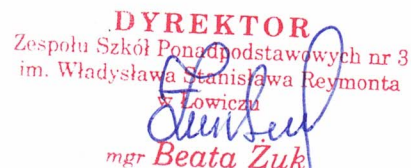 DYREKTOR
Zespołu Szkół Ponadpodstawowych nr 3
im. Władysława Stanisława Reymonta
w Łowiczu
mgr Beata Żuk